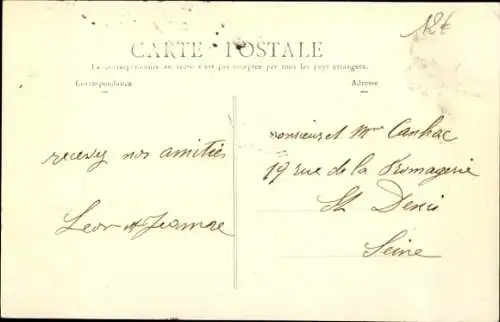 CARTE POSTALE
La correspondance au recto n'est pas acceptée par tous les pays étrangers.
Correspondance
Adresse
recevez nos amitiés
Leon et Jeanne
monsieur et Mme Canhac
19 rue de la Fromagerie
St Denis
Seine